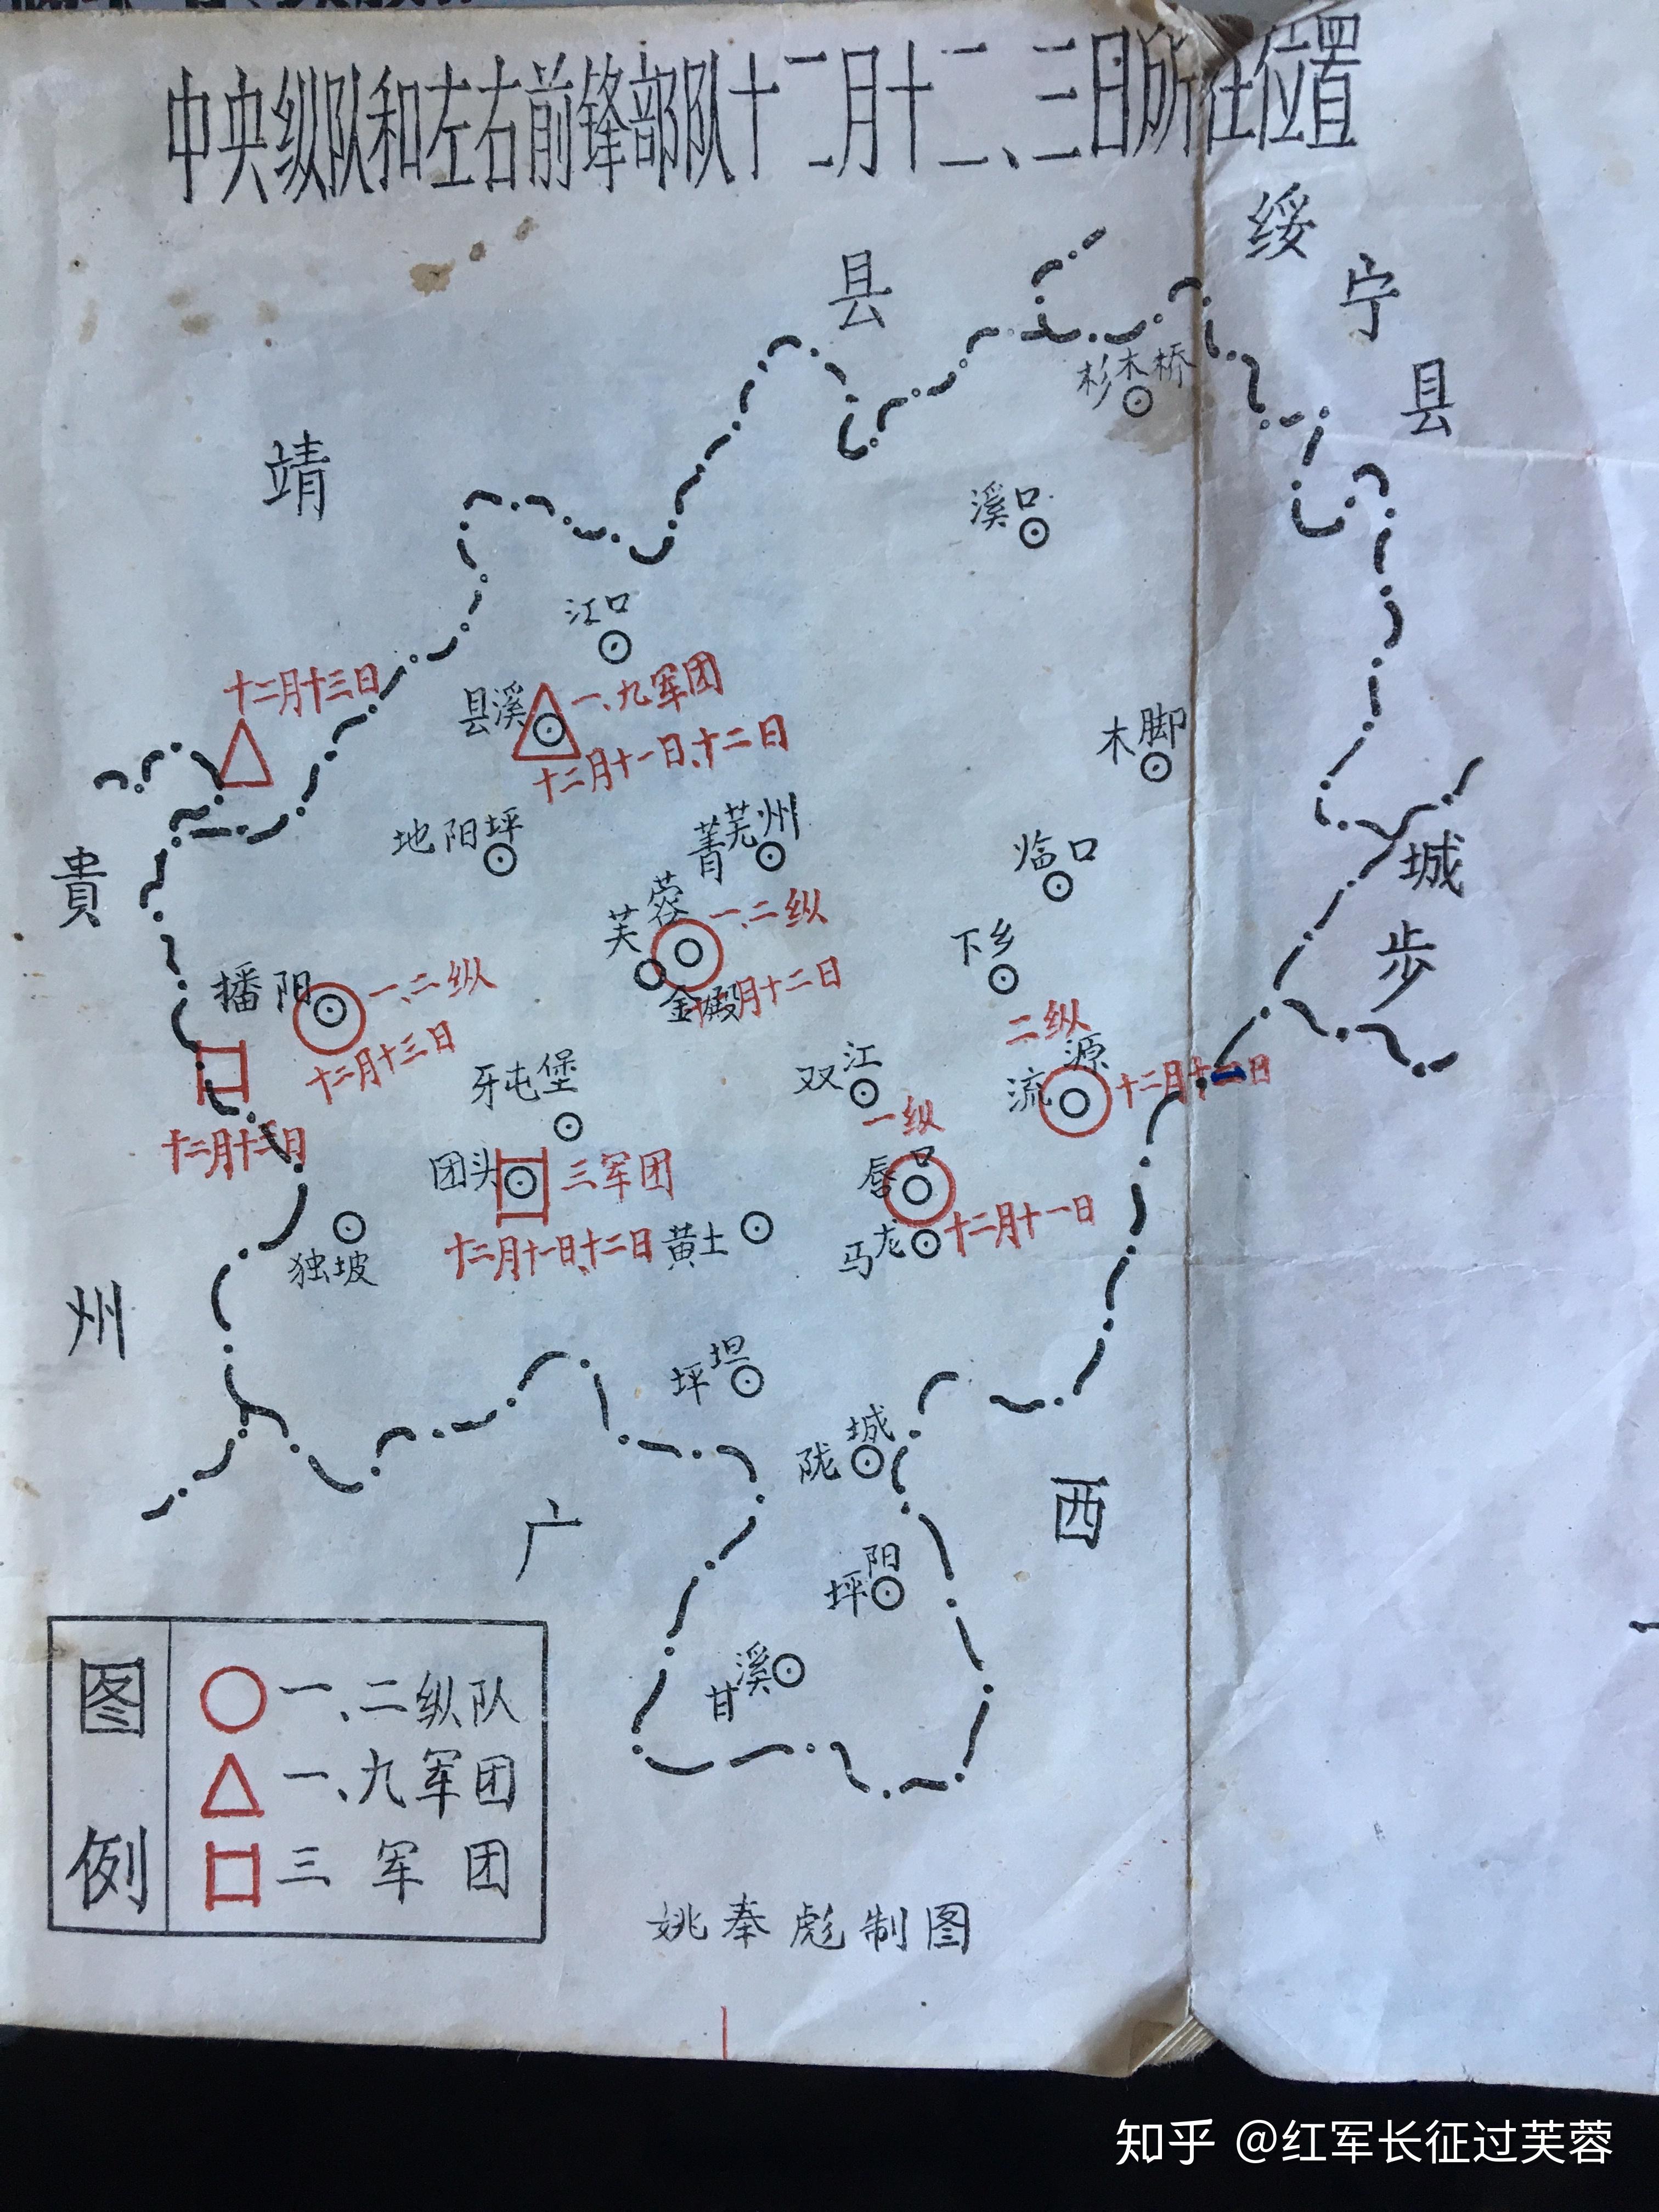 中央纵队和左右前锋部队十二月十二、三日所在位置
绥宁县
靖县
杉木桥
溪口
江口
十二月十三日
县溪
一、九军团
十二月十一日、十二日
木脚
地阳坪
菁芜州
临口
城步
贵
芙蓉
一、二纵
下乡
播阳
一、二纵
金殿
月十二日
十二月十三日
二纵
流源
双江
牙屯堡
一纵
团头
三军团
唇口
十二月十一日
十二月十一日、十二日
黄土
马龙
独坡
州
坪坦
陇城
广西
坪阳
甘溪
图例
一、二纵队
一、九军团
三军团
姚奉彪制图
知乎 @红军长征过芙蓉